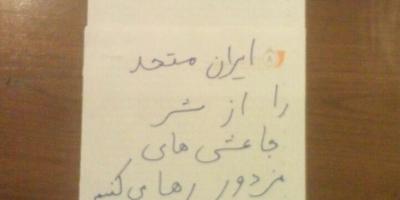 ۸ ایران متحد
را از شر
جاعشی های
مزدور رها می کنیم